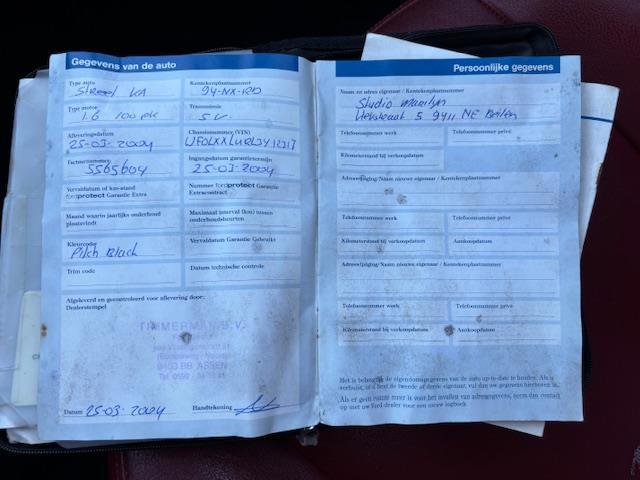 Gegevens van de auto
Type auto
Street KA
Kentekenplaatnummer
94-NX-RD
Type motor
1.6 100 pk
Transmissie
5V.
Afleveringsdatum
25-03-2004
Chassisnummer (VIN)
Factuurnummer
5565604
Ingangsdatum garantietermijn
25-03-2004
Vervaldatum of km-stand
fordprotect Garantie Extra
Nummer fordprotect Garantie
Extracontract
Maand waarin jaarlijks onderhoud
plaatsvindt
Maximaal interval (km) tussen
onderhoudsbeurten
Kleurcode
Pitch Black
Vervaldatum Garantie Gebruikt
Trim code
Datum technische controle
Afgeleverd en gecontroleerd voor aflevering door:
Dealerstempel
TIMMERMAN B.V.
9403 BB ASSEN
Datum 25-03-2004
Handtekening
Persoonlijke gegevens
Naam en adres eigenaar / Kentekenplaatnummer
Studio Marilyn
5 9411 NE Beilen
Telefoonnummer werk
Telefoonnummer privé
Kilometerstand bij verkoopdatum
Adreswijziging/Naam nieuwe eigenaar / Kentekenplaatnummer
Telefoonnummer werk
Telefoonnummer privé
Kilometerstand bij verkoopdatum
Aankoopdatum
Adreswijziging/Naam nieuwe eigenaar / Kentekenplaatnummer
Telefoonnummer werk
Telefoonnummer privé
Kilometerstand bij verkoopdatum
Aankoopdatum
Het is belangrijk de eigendomsgegevens van de auto up-to-date te houden. Als u
verhuist, of u bent de tweede of derde eigenaar, vul dan uw gegevens hierboven in.
Als er geen ruimte meer is voor het invullen van adresgegevens, neem dan contact
op met uw Ford dealer voor een nieuw logboek.